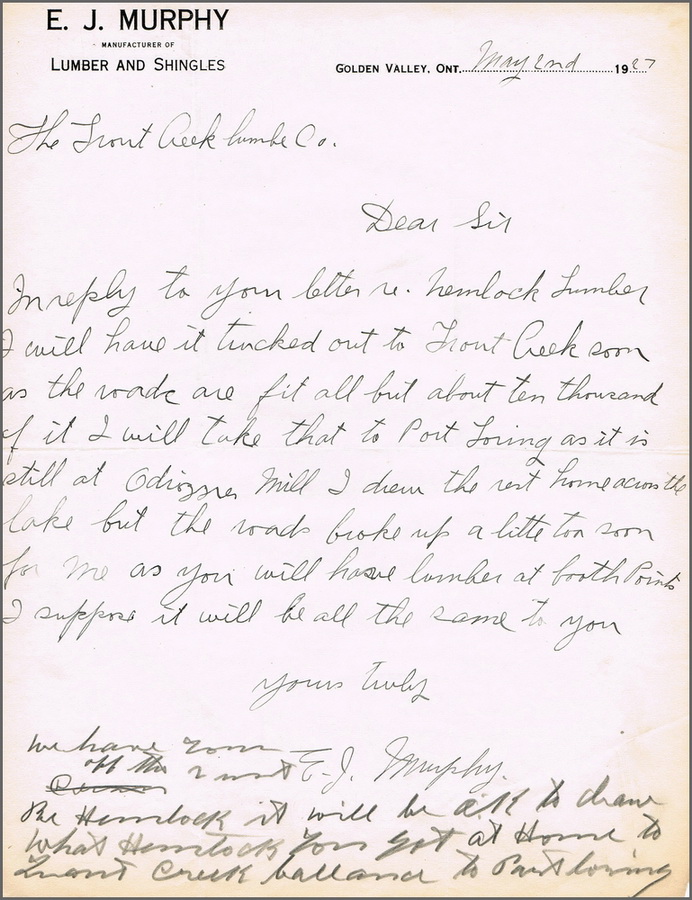 E. J. MURPHY
MANUFACTURER OF
LUMBER AND SHINGLES
GOLDEN VALLEY, ONT. May 2nd 1927
The Trout Creek lumbe Co.
Dear Sir
In reply to your letter re. hemlock Lumber
I will have it trucked out to Trout Creek soon
as the roads are fit all but about ten thousand
of it I will take that to Port Loring as it is
still at Mill I drew the rest home across the
lake but the roads broke up a litte too soon
for me as you will have lumber at booth Points
I suppose it will be all the same to you
yours truly
E. J. Murphy.
we have your
off the 2 inst
Re Hemlock it will be o.K to draw
What Hemlock you got at Home to
Trout Creek ballance to Port loring